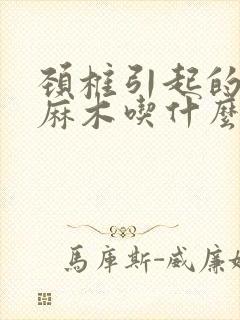 頚椎引起的
麻木喫什麼
馬庫斯-威廉